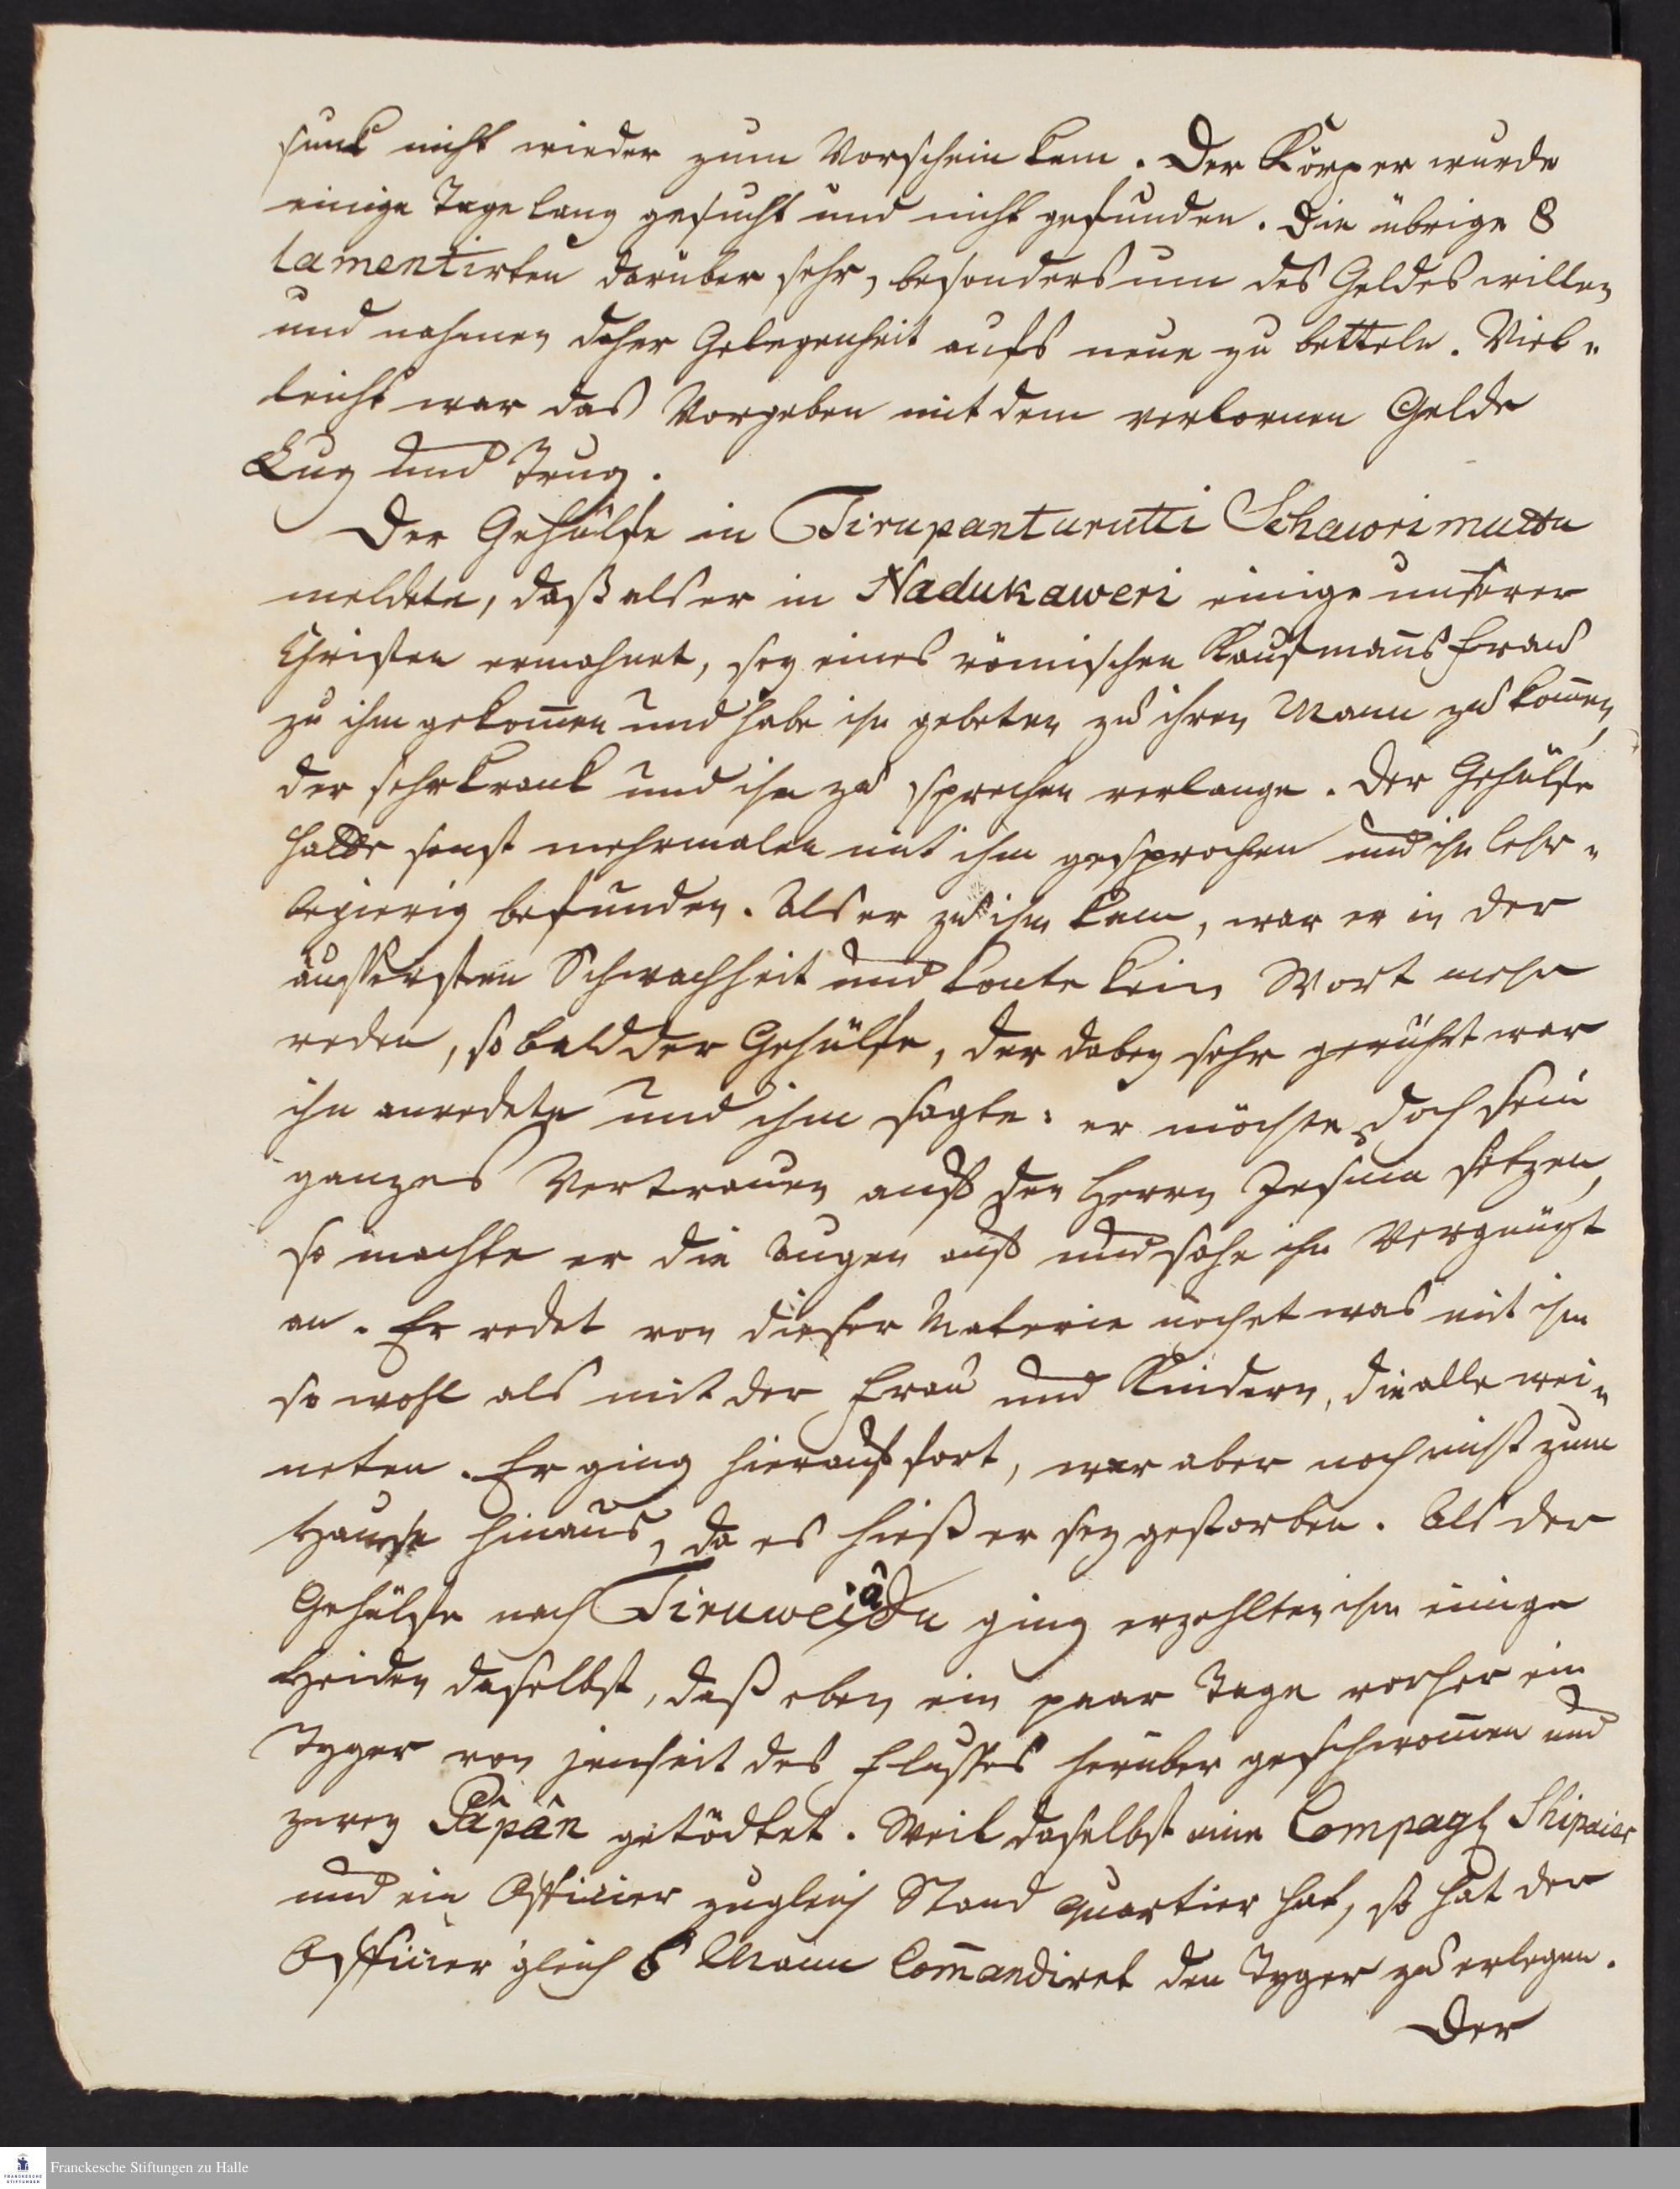 sank nicht wieder zum Vorschein kam. Der Körper wurde
einige Tage lang gesucht und nicht gefunden. Die übrige 8
lamentirten darüber sehr, besonders um des Geldes willen
und nahmen daher Gelegenheit aufs neue zu betteln. Viel„
leicht war das Vorgeben mit dem verlornen Gelde
Lug und Trug.
Der Gehülfe in Tirupanturutti Schawrimuttu
meldete, daß als er in Nadukaweri einige unserer
Christen ermahnet, sey eines römischen Kaufmañs Frau
zu ihm gekom̄en und habe ihn gebeten zu ihren Mann zu kom̄en,
der sehr krank und ihn zu sprechen verlange. Der Gehülfe
hatte sonst mehrmalen mit ihm gesprochen und ihn lehr„
begierig befunden. Als er zu ihm kam, war er in der
äussersten Schwachheit und konte kein Wort mehr
reden, so bald der Gehülfe, der dabey sehr gerührt war
ihn anredete und ihm sagte: er möchte doch sein
ganzes Vertrauen auf den Herrn Jesum setzen,
so machte er die Augen auf und sahe ihn Vergnügt
an. Er redet von dieser Materie noch etwas mit ihm
so wohl als mit der Frau und Kindern, die alle wei„
neten. Er ging hierauf fort, war aber noch nicht zum
Hause hinaus, da es hieß er sey gestorben. Als der
Gehülfe nach Tiruweiâdu ging erzehlten ihm einige
Heiden daselbst, daß eben ein paar Tage vorher ein
Tyger von jenseit des Flusses herüber geschwom̄en und
zwey Pâpân getödtet. Weil daselbst eine Compagl Shipaier
und ein Officier zugleich Stand quartier hat, so hat der
Officier gleich 6 Mann Com̄andiret den Tyger zu erlegen.
Der
Franckesche Stiftungen zu Halle
FRANCKESCHE
STIFTUNGEN